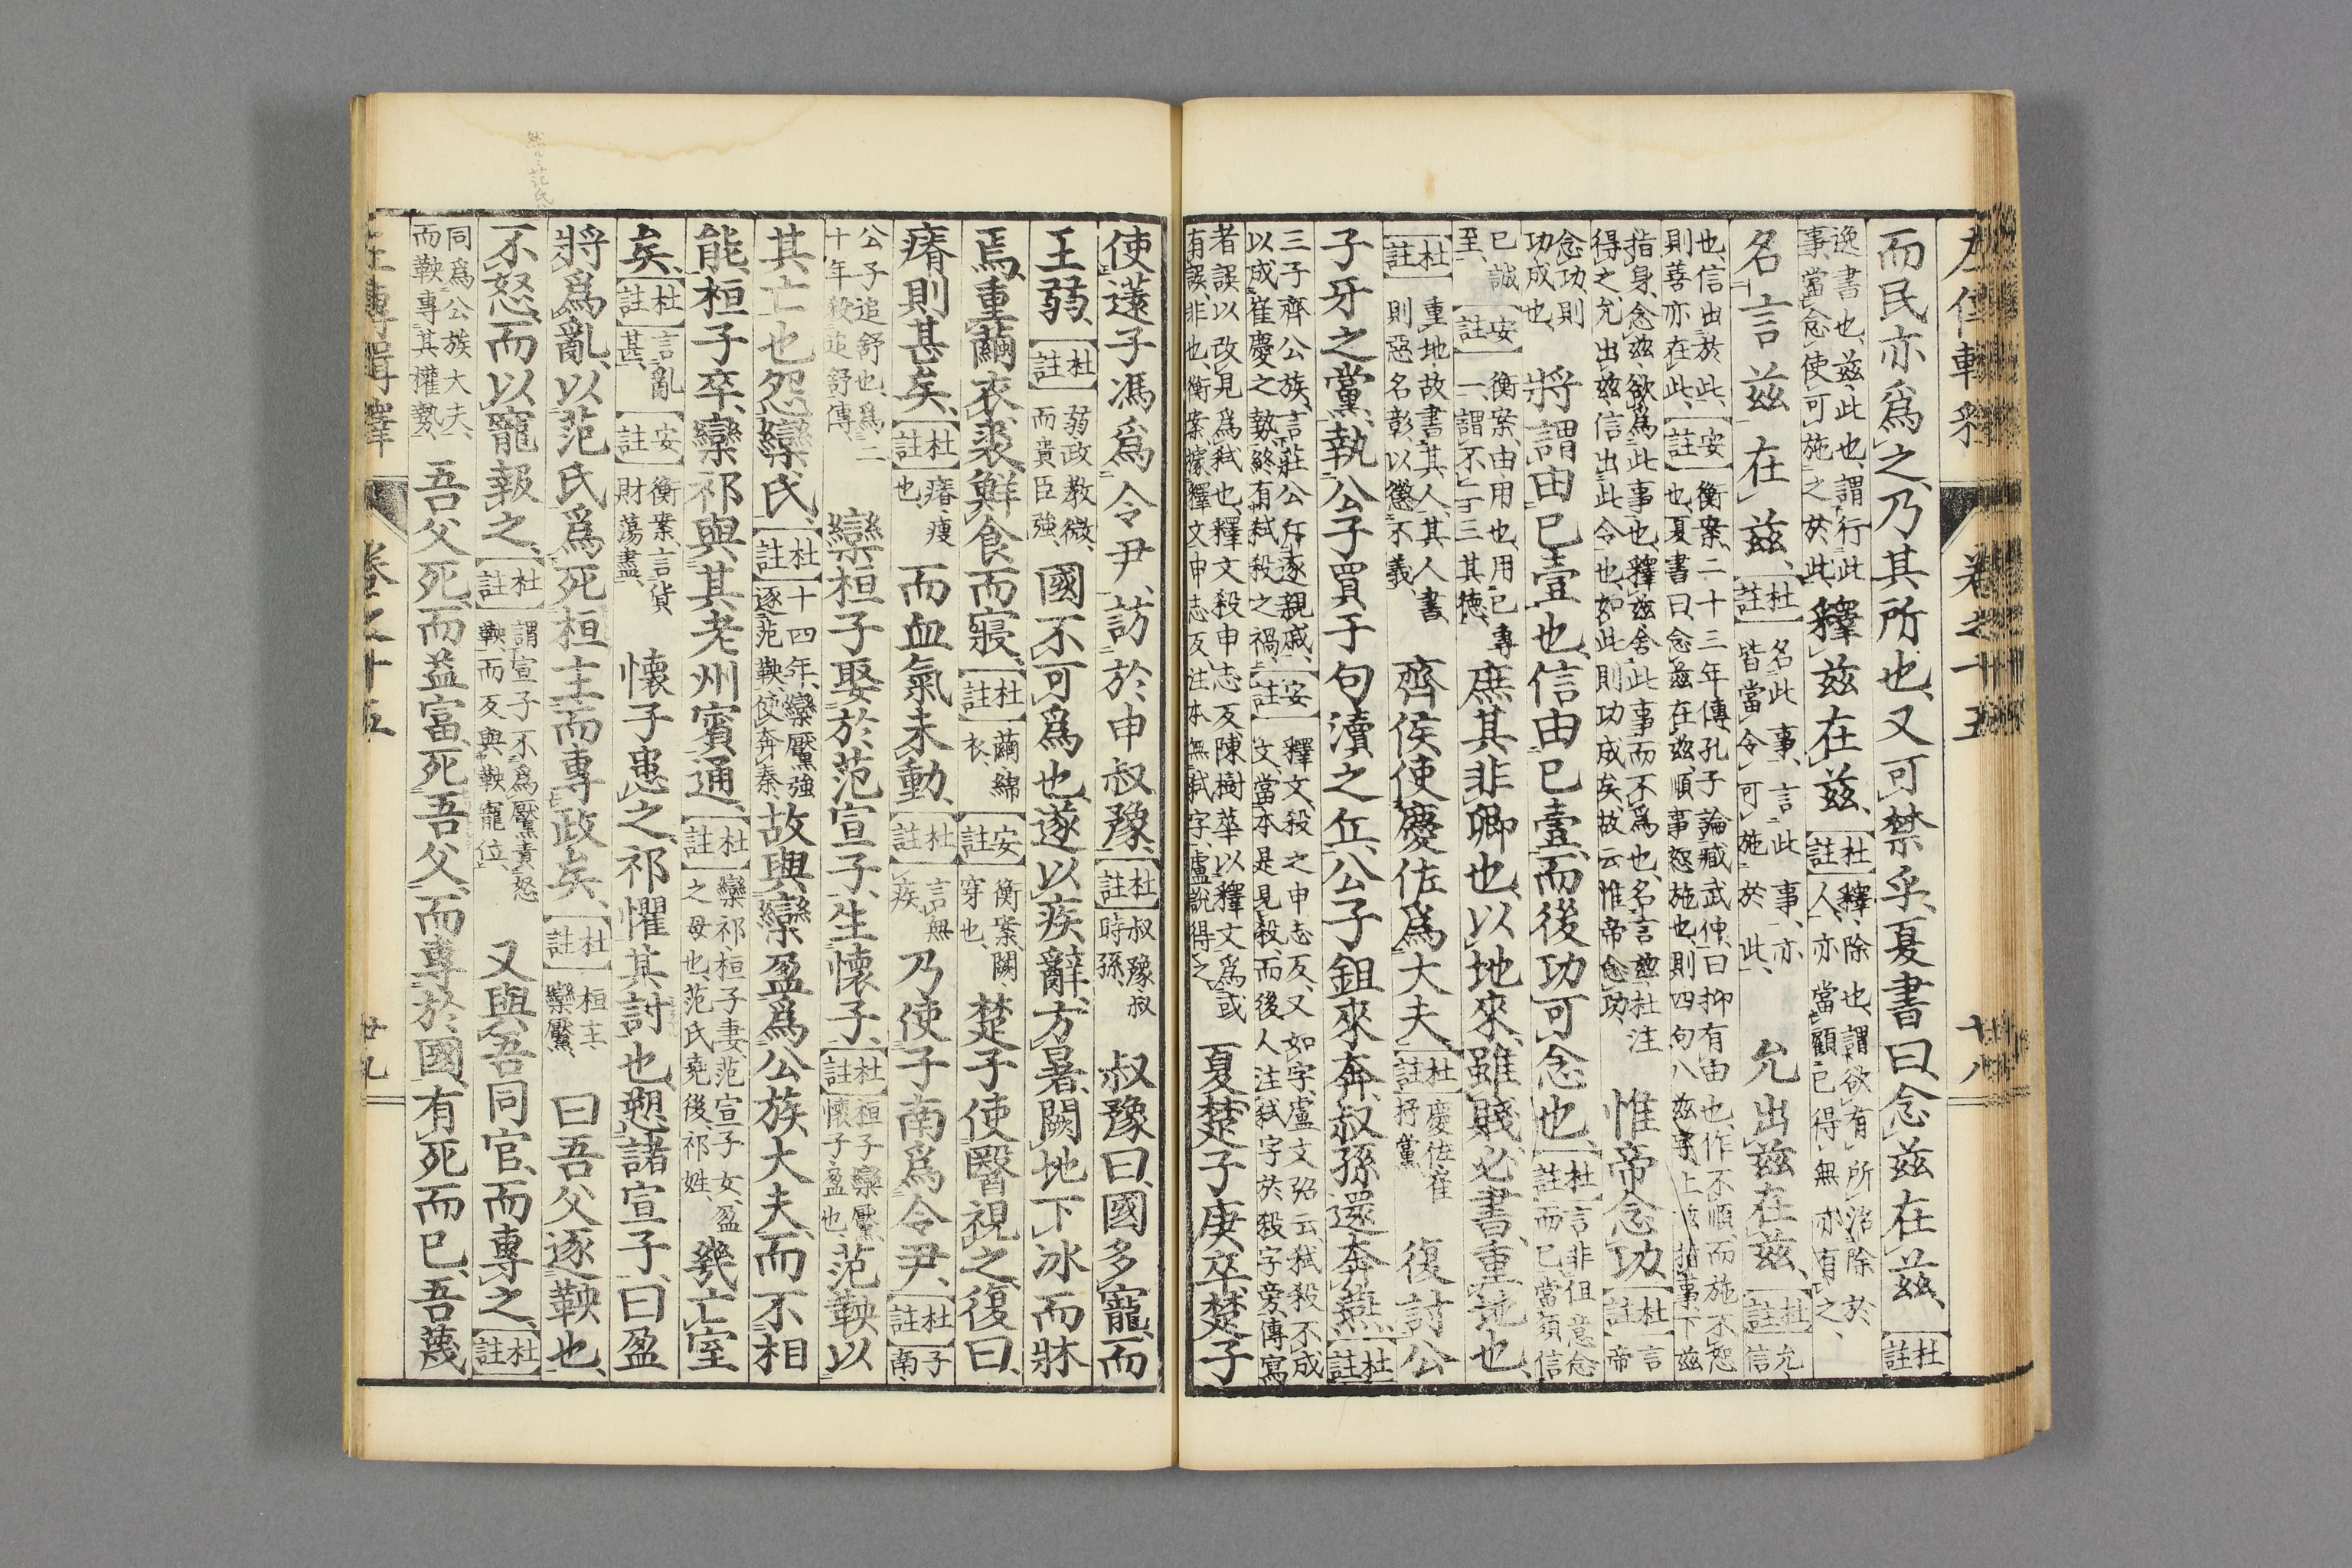 左傳輯釋 卷之十五 廿八
而民亦爲之、乃其所也、又可禁乎、夏書曰、念茲在茲、杜註
逸書也、茲、此也、謂行此事、當念使可施之於此、釋茲在茲、杜註釋、除也、謂欲有所治除於人、亦當顧己得無亦有之、
名言茲在茲、杜註名此事、言此事、亦皆當令可施於此、允出茲在茲、杜註允、信
也、信出於此、則善亦在此、安註衡案、二十三年傳、孔子論臧武仲曰、抑有由也、作不順、而施不恕也、夏書曰、念茲在茲、順事恕施也、則四句八茲字、上茲指事、下茲
指身、念茲、欲爲此事也、釋茲、舍此事而不爲也、名言茲、杜注得之、允出茲、信出此令也、如此則功成矣、故云惟帝念功、惟帝念功、杜註言帝
念功、則功成也、將謂由己壹也、信由己壹、而後功可念也、杜註言非但意念而已、當須信
已誠至、安註衡案、由、用也、用己專一、謂不二三其德、庶其非卿也、以地來、雖賤必書、重地也、
杜註重地、故書其人、其人書、則惡名彰、以懲不義、齊侯使慶佐爲大夫、杜註慶佐、崔杼黨、復討公
子牙之黨、執公子買于句瀆之丘、公子鉏來奔、叔孫還奔燕、杜註
三子齊公族、言莊公斥逐親戚、以成崔慶之勢、終有弒殺之禍、安註釋文、殺之申志反、又如字、盧文弨云、弒殺不成文、當本是見殺、而後人注弒字於殺字旁、傳寫
者誤以改見爲弒也、釋文殺申志反、陳樹華以釋文爲或有誤、非也、衡案、據釋文申志反、注本無弒字、盧說得之、夏楚子庚卒、楚子
使薳子馮爲令尹、訪於申叔豫、杜註叔豫、叔時孫、叔豫曰、國多寵、而
王弱、杜註弱、政敎微、而貴臣強、國不可爲也、遂以疾辭、方暑、闕地下冰而牀
焉、重繭衣裘、鮮食而寢、杜註繭、綿衣、安註衡案、闕、穿也、楚子使醫視之、復曰、
瘠則甚矣、杜註瘠、瘦也、而血氣未動、杜註言無疾、乃使子南爲令尹、杜註子南、
公子追舒也、爲二十年殺追舒傳、欒桓子娶於范宣子、生懷子、杜註桓子、欒黶、懷子、盈也、范鞅以
其亡也怨欒氏、杜註十四年、欒黶強逐范鞅、使奔秦、故與欒盈爲公族大夫、而不相
能、桓子卒、欒祁與其老州賓通、杜註欒祁、桓子妻、范宣子女、盈之母也、范氏堯後、祁姓、幾亡室
矣、杜註言亂甚、安註衡案、言貨財蕩盡、懷子患之、祁懼其討也、愬諸宣子、曰、盈
將爲亂、以范氏爲死桓主而專政矣、杜註桓主、欒黶、曰吾父逐鞅也、
不怒、而以寵報之、杜註謂宣子不爲黶責怒鞅、而反與鞅寵位、又與吾同官、而專之、杜註
同爲公族大夫、而鞅專其權勢、吾父死而益富、死吾父、而專於國、有死而已、吾蔑
左傳輯釋 卷之十五 廿九